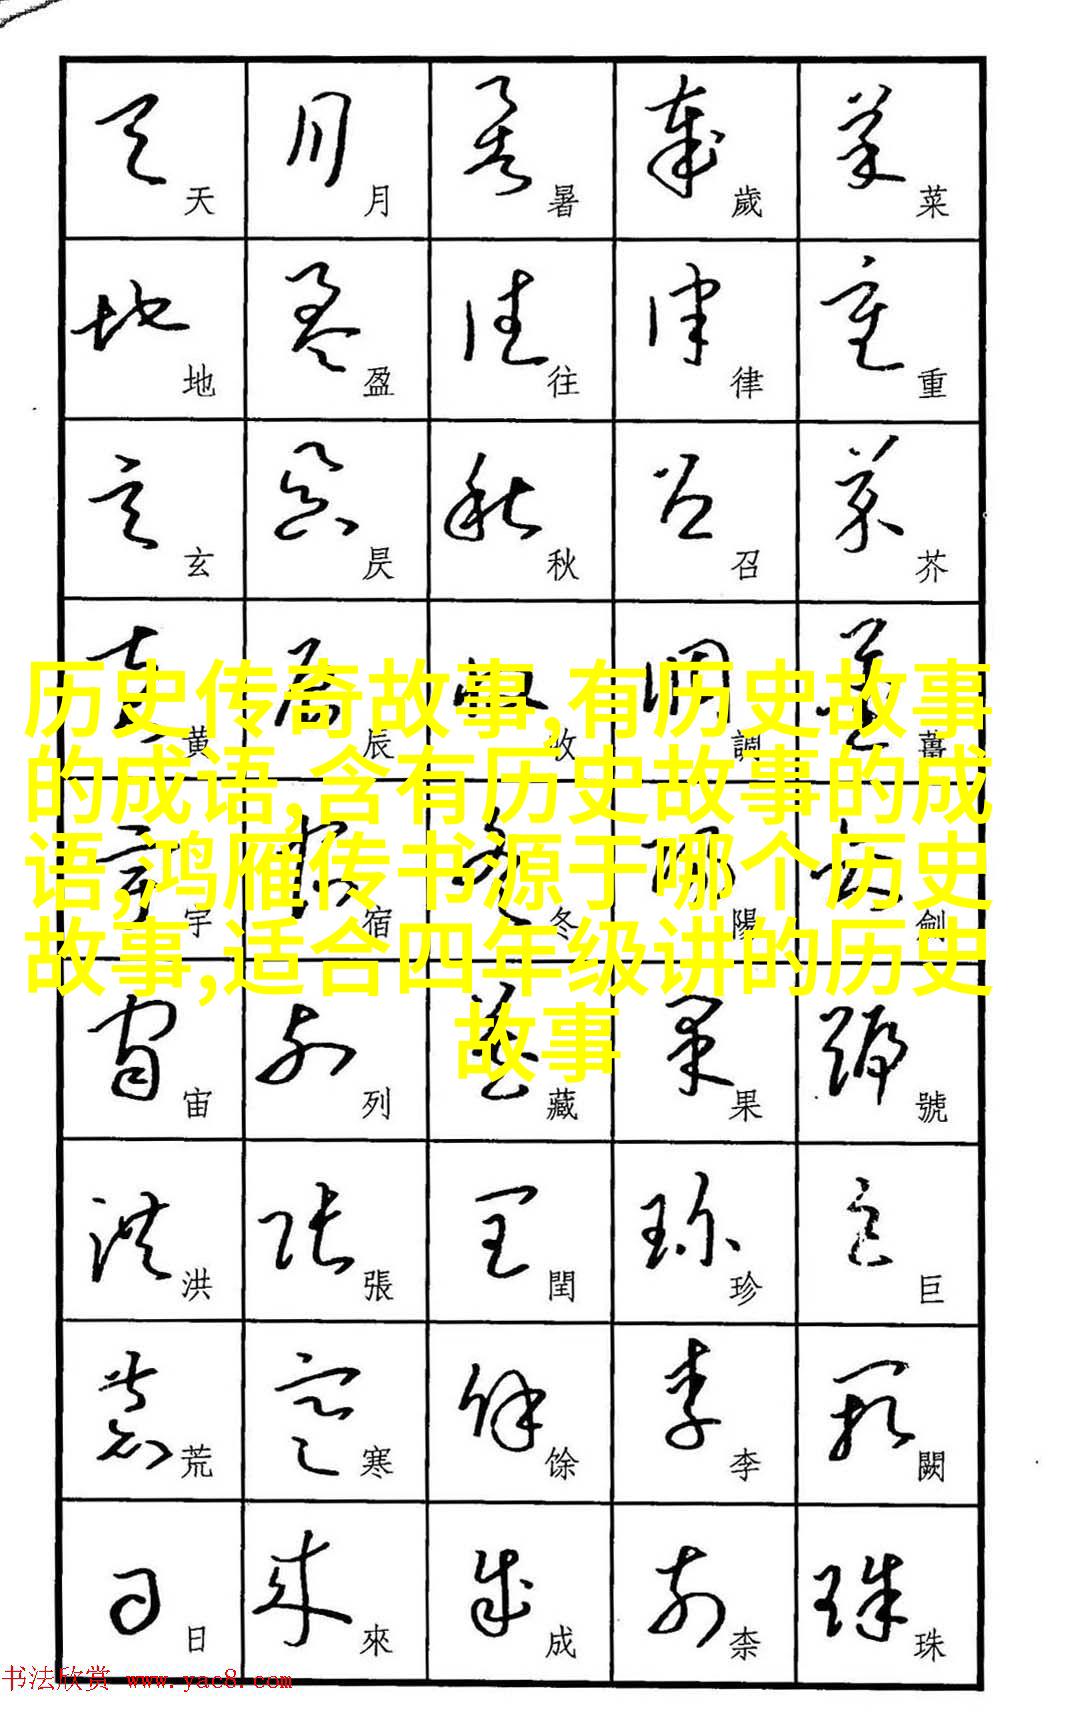 天地玄黄宇宙洪荒日
月盈昃辰宿列張寒來
暑往秋收冬藏閏馀成
歲律召調陽果珍李柰
菜重芥薑劍號巨闕珠
历史传奇故事,有历史故事
的成语,含有历史故事的成
语,鸿雁传书源于哪个历史
故事,适合四年级讲的历史
故事
书法欣赏 www.yac8.com